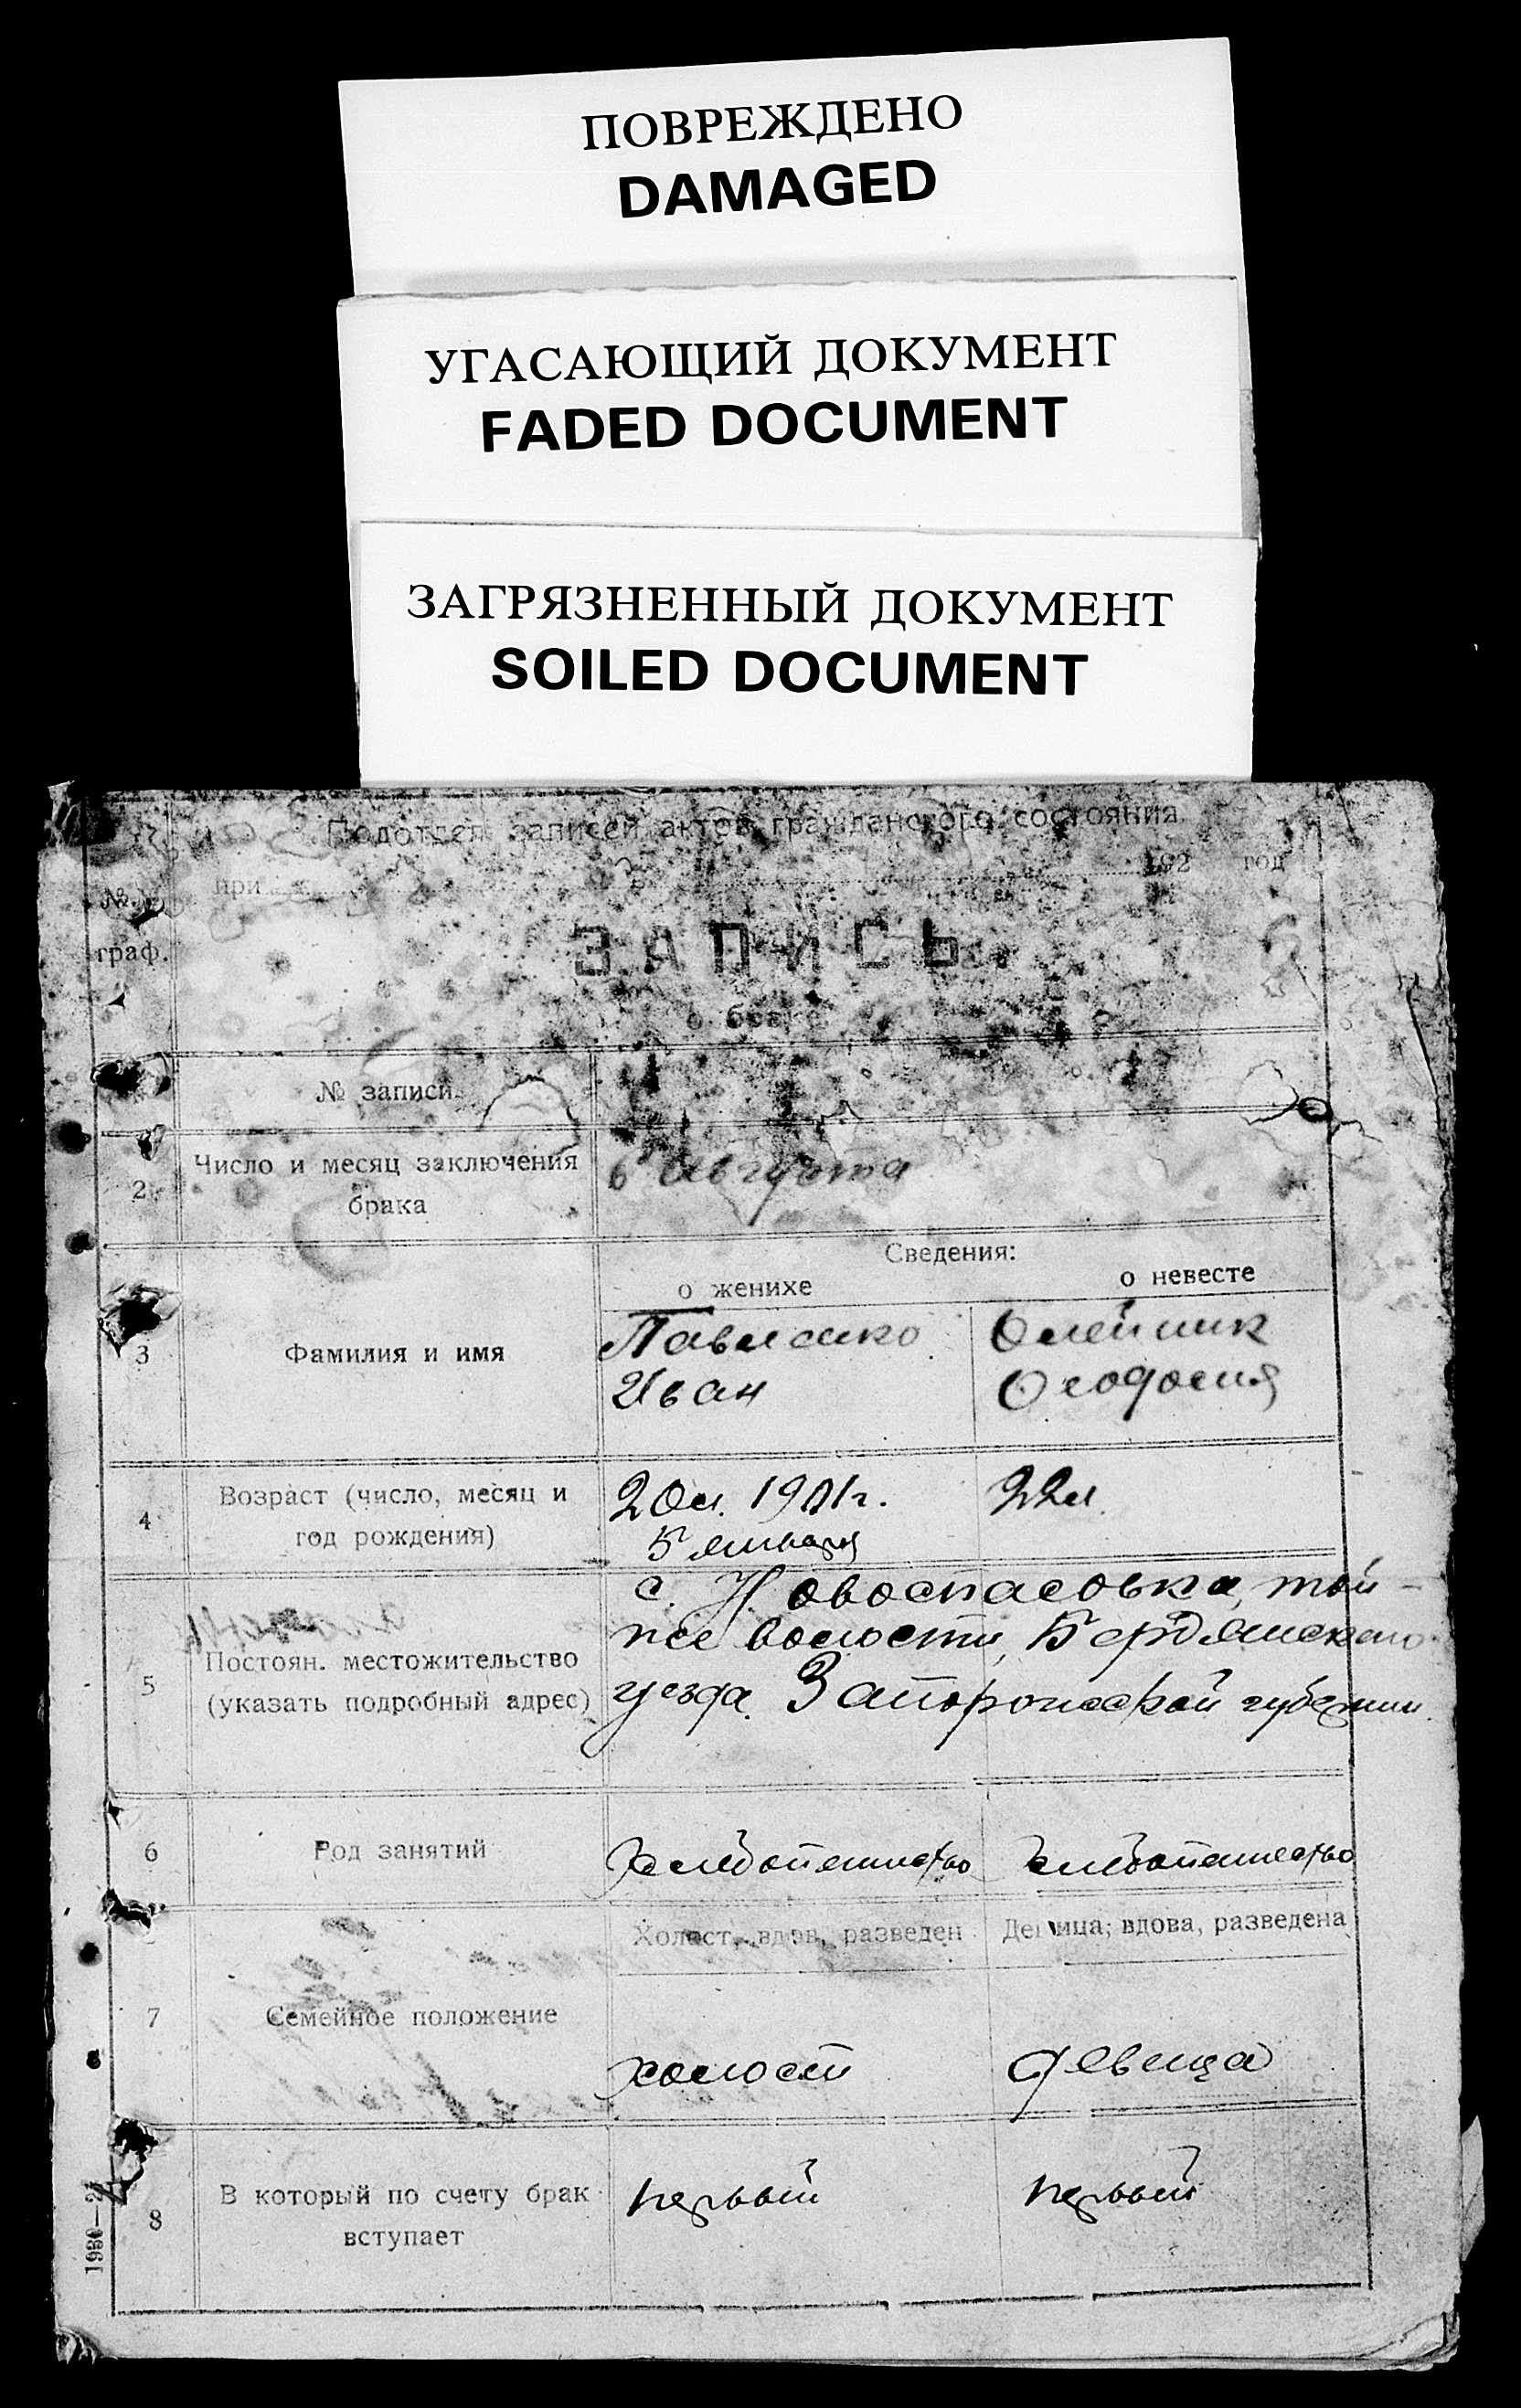 ПОВРЕЖДЕНО
DAMAGED
УГАСАЮЩИЙ ДОКУМЕНТ
FADED DOCUMENT
ЗАГРЯЗНЕННЫЙ ДОКУМЕНТ
SOILED DOCUMENT
Подотдел записей актов гражданского состояния
при 192 год
№№
граф.
ЗАПИСЬ
о браке
№ записи
2 Число и месяц заключения
брака
6 августа
Сведения:
о женихе о невесте
3 Фамилия и имя
Павленко Олейник
Иван Феодосия
4 Возраст (число, месяц и
год рождения)
20 л. 1901 г. 22 л.
5 января
5 Постоян. местожительство
(указать подробный адрес)
с. Новоспасовка, той-
же волости, Бердянского
уезда. Запорожской губернии.
6 Род занятий
Хлебопашество хлебопашество
Холост, вдов, разведен Девица, вдова, разведена
7 Семейное положение
холост девица
8 В который по счету брак
вступает
первый первый